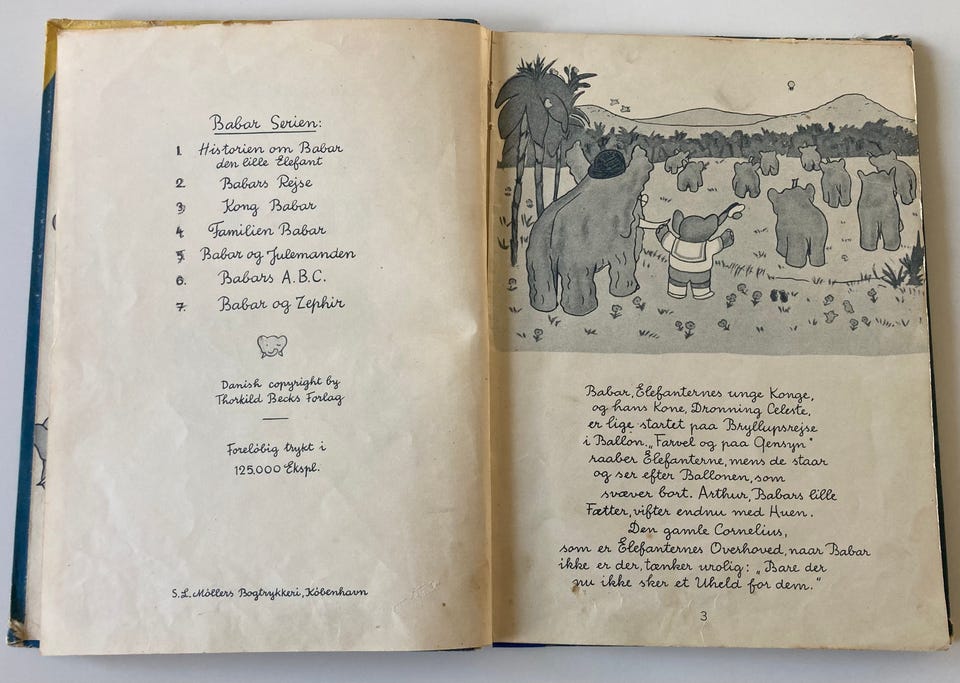 Babar Serien:
1. Historien om Babar
den lille Elefant
2. Babars Rejse
3. Kong Babar
4. Familien Babar
5. Babar og Julemanden
6. Babars A.B.C.
7. Babar og Zephir
Danish copyright by
Thorkild Becks Forlag
Forelöbig trykt i
125.000 Ekspl.
S. L. Möllers Bogtrykkeri, Köbenhavn
Babar, Elefanternes unge Konge,
og hans Kone, Dronning Celeste,
er lige startet paa Bryllupsrejse
i Ballon. „Farvel og paa Gensyn"
raaber Elefanterne, mens de staar
og ser efter Ballonen, som
svæver bort. Arthur, Babars lille
Fætter, vifter endnu med Huen.
Den gamle Cornelius,
som er Elefanternes Overhoved, naar Babar
ikke er der, tænker urolig: „Bare der
nu ikke sker et Uheld for dem."
3